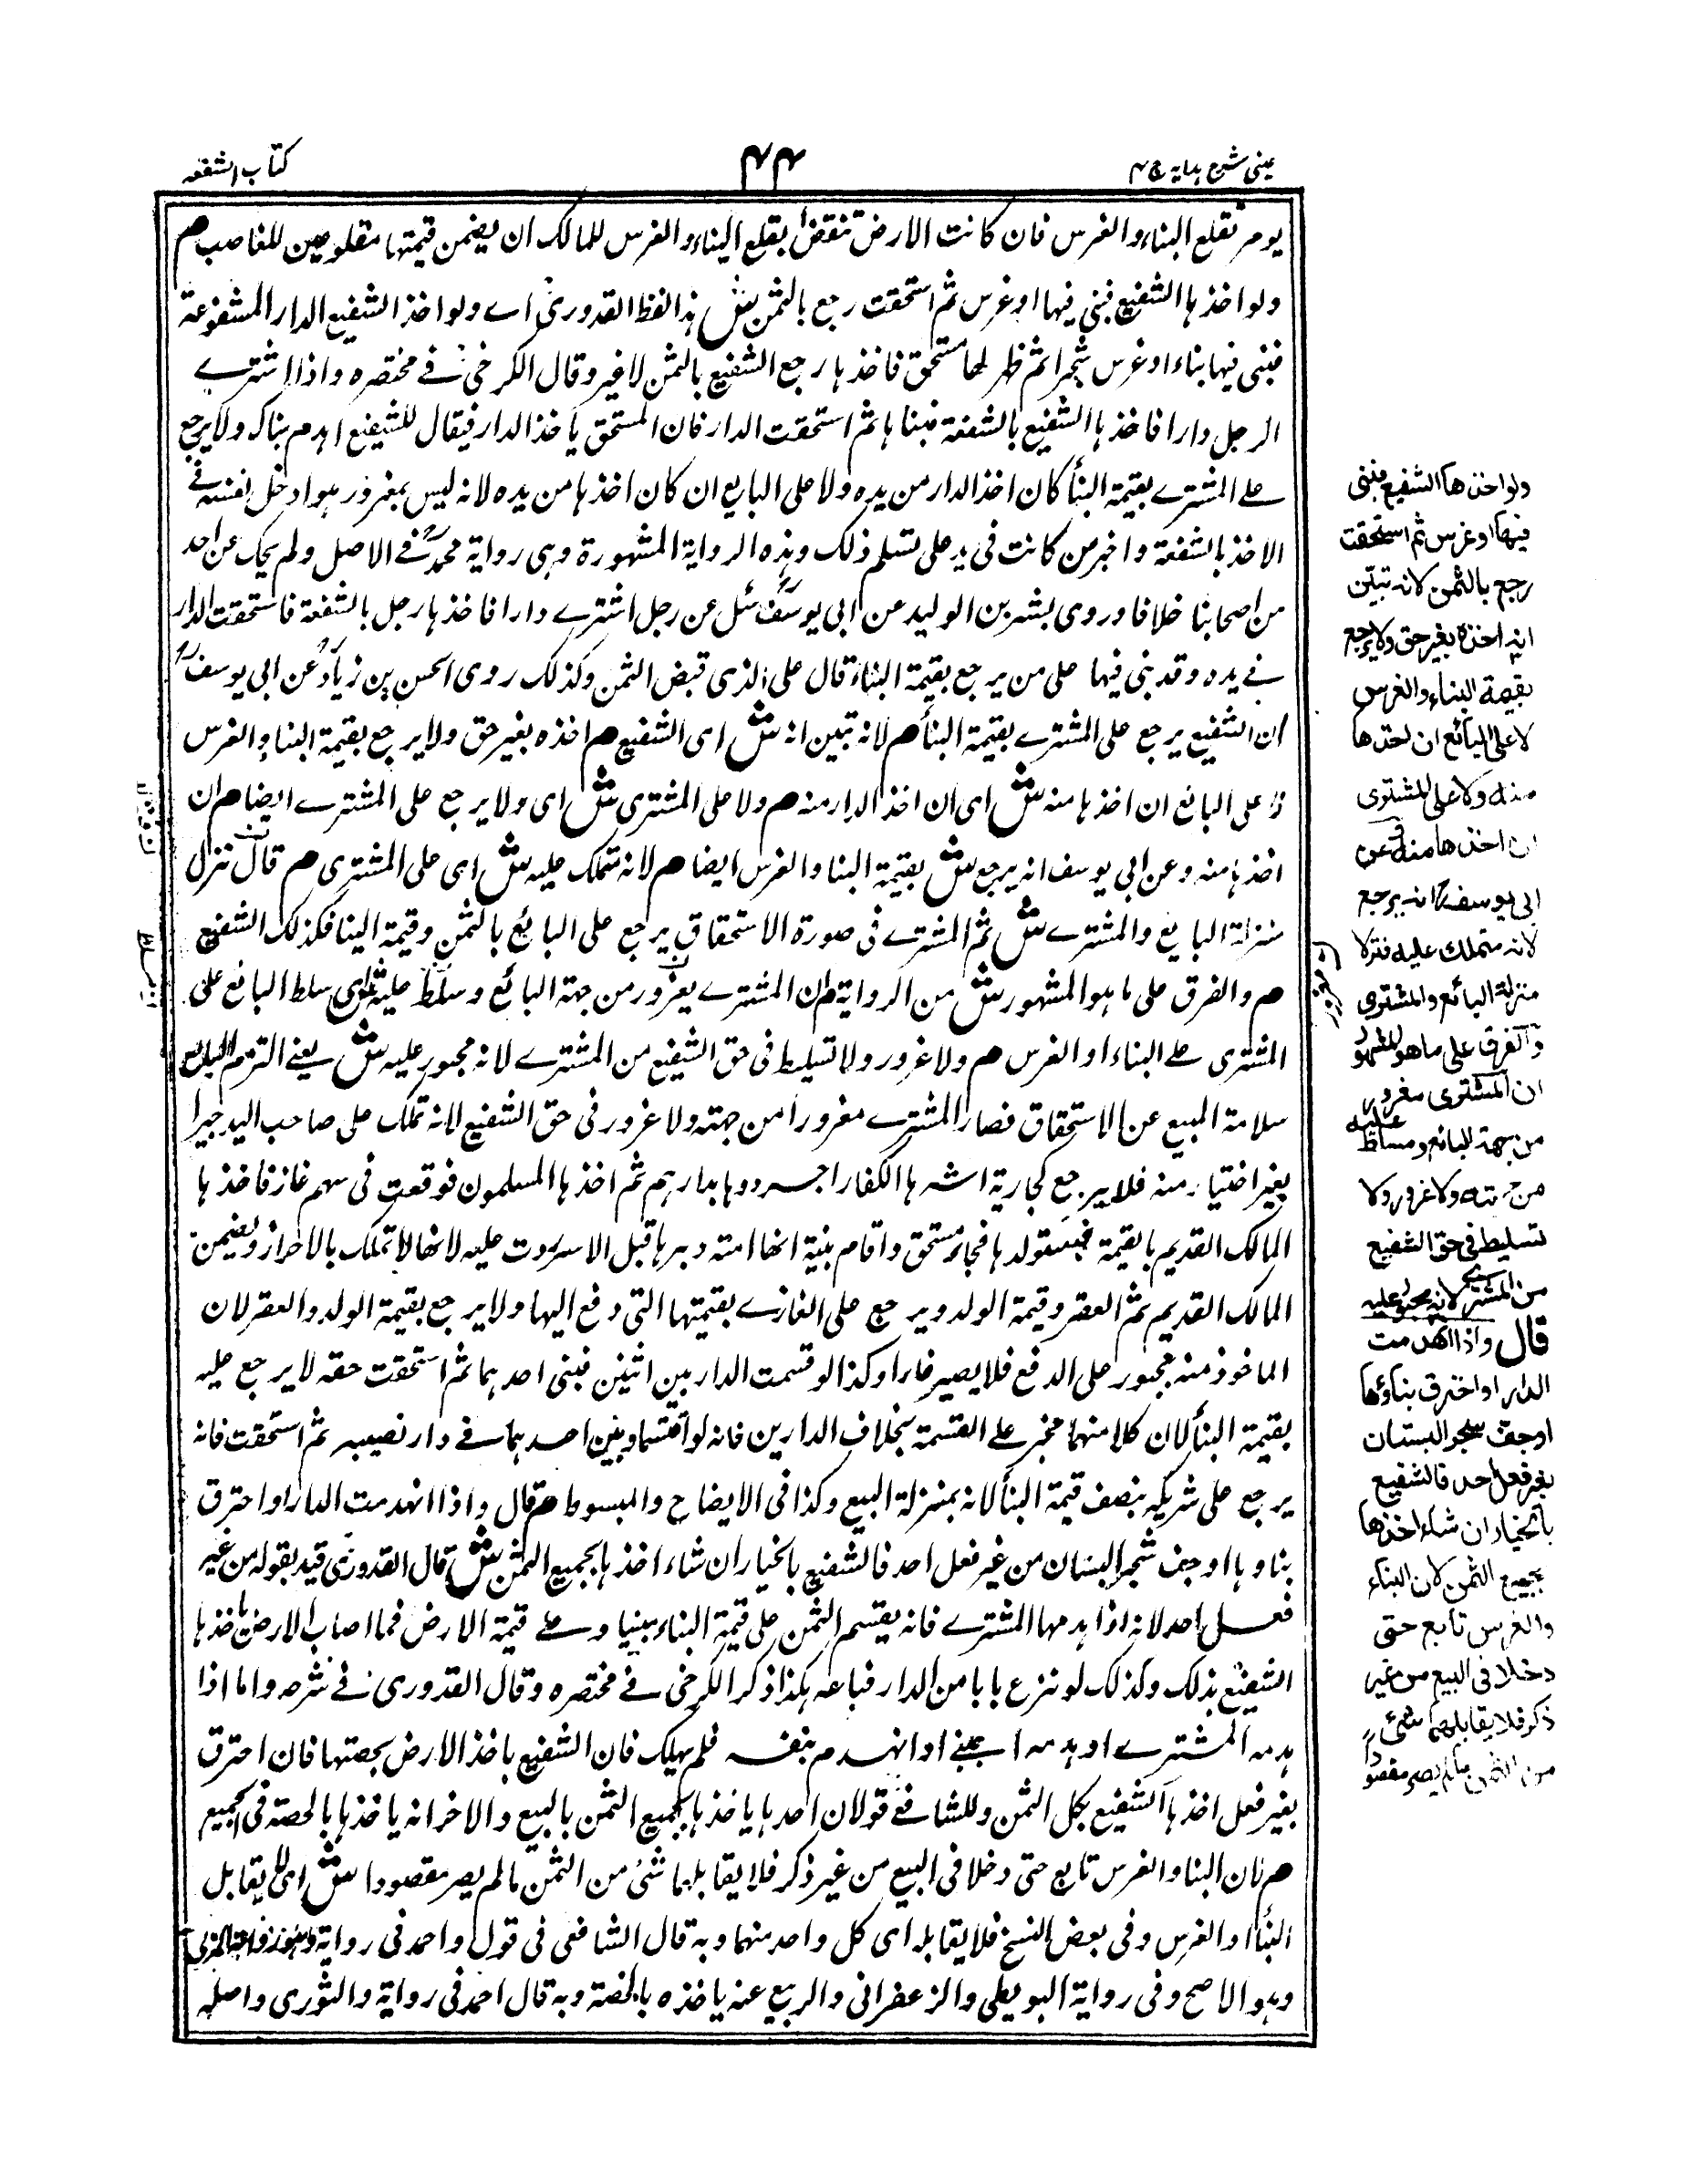 عینی شرح ہدایہ ج ۴
۴۴
کتاب الشفعہ
يوم تقلع البناء والغرس فان كانت الارض تنقض بقلع البناء والغرس للمالك ان يضمن قيمتها مقلوعين للغاصب م
ولو اخذها الشفيع فبنى فيها او غرس ثم استحقت رجع بالثمن ش هذا لفظ القدوري اے ولو اخذ الشفيع الدار المشفوعة
فبنى فيها بناء او غرس شجرا ثم ظهر لها مستحق فاخذها رجع الشفيع بالثمن لا غير وقال الكرخي في مختصره واذا اشترے
الرجل دارا فاخذها الشفيع بالشفعة فبناها ثم استحقت الدار فان المستحق ياخذ الدار فيقال للشفيع اهدم بناك ولا يرجع
علے المشترے بقيمة البنأ كان اخذ الدار من يده ولا على البايع ان كان اخذها من يده لانه ليس بمغرور هو ادخل نفسه في
الاخذ بالشفعة واخبر من كانت في يد على تسلم ذلك وهذه الرواية المشهورة وهي رواية محمد في الاصل ولم يحك عن احد
من اصحابنا خلافا وروى بشر بن الوليد عن ابي يوسف سئل عن رجل اشترے دارا فاخذها رجل بالشفعة فاستحقت الدار
في يده وقد بنى فيها على من يرجع بقيمة البناء قال على الذى قبض الثمن وكذلك روى الحسن بن زياد عن ابي يوسف
ان الشفيع يرجع على المشترے بقيمة البنأ م لانه تبين انه ش اى الشفيع م اخذه بغير حق ولا يرجع بقيمة البناء والغرس
لا على البائع ان اخذها منه ش اى ان اخذ الدار منه م ولا على المشترى ش اى ولا يرجع على المشترے ايضا م ان
اخذها منه وعن ابي يوسف انه يرجع ش بقيمة البنا والغرس ايضا م لانه متملك عليه ش اى على المشترى م قال تنزل
منزلة البايع والمشترے ش ثم المشترے فى صورة الاستحقاق يرجع على البائع بالثمن وقيمة البنا فكذلك الشفيع
م والفرق على ما هو المشهور ش من الرواية م ان المشترے مغرور من جهة البائع وسلط عليه ش اى سلط البائع على
المشترى علے البناء او الغرس م ولا غرور ولا تسليط فى حق الشفيع من المشترے لانه مجبور عليه ش يعنے التزم البايع
سلامة المبيع عن الاستحقاق فصار المشترے مغرورا من جهته ولا غرور فى حق الشفيع لانه تملك على صاحب اليد جبرا
بغير اختيار منه فلا يرجع كجارية اسرها الكفار احرزوها بدارهم ثم اخذها المسلمون فوقعت فى سهم غاز فاخذها
المالك القديم بالقيمة فاستولدها فجاء مستحق واقام بينة انها امته دبرها قبل الاسر ردت عليه لانها لا تملك بالاحراز ويضمن
المالك القديم ثم العقر وقيمة الولد ويرجع على الغازے بقيمتها التى دفع اليها ولا يرجع بقيمة الولد والعقر لان
الماخوذ منه مجبور على الدفع فلا يصير غارا وكذا لو قسمت الدار بين اثنين فبنى احدهما ثم استحقت حقه لا يرجع عليه
بقيمة البنأ لان كلا منهما مجبر علے القسمة بخلاف الدارين فانه لو اقتسما وبنى احدهما في دار نصيبه ثم استحقت فانه
يرجع على شريكه بنصف قيمة البنأ لانه بمنزلة البيع وكذا فى الايضاح والمبسوط م قال واذا انهدمت الدار او احترق
بناوها او جف شجر البستان من غير فعل احد فالشفيع بالخيار ان شاء اخذها بجميع الثمن ش قال القدورى قيد بقوله من غير
فعل احد لانه اذا هدمها المشترے فانه يقسم الثمن على قيمة البناء مبنيا وعلے قيمة الارض فما اصاب الارض ياخذها
الشفيع بذلك وكذلك لو نزع بابا من الدار فباعه هكذا ذكر الكرخى في مختصره وقال القدورى في شرحه واما اذا
هدمه المشترے او هدمه اجنبے او انهدم بنفسه فلم يهلك فان الشفيع ياخذ الارض بحصتها فان احترق
بغير فعل اخذها الشفيع بكل الثمن وللشافعے قولان احدها ياخذها بجميع الثمن بالبيع والاخر انه ياخذها بالحصة فى الجميع
م لان البنا والغرس تابع حتى دخلا فى البيع من غير ذكر فلا يقابلهما شئ من الثمن ما لم يصر مقصودا ش اى لا يقابل
البنأ او الغرس وفى بعض النسخ فلا يقابله اى كل واحد منهما وبه قال الشافعى فى قول واحمد فى رواية
وهو الاصح وفى رواية البويطى والزعفرانى والربيع عنه ياخذه بالحصة وبه قال احمد فى رواية والثورى واصله
ولو اخذها الشفيع فبنى
فيها او غرس ثم استحقت
رجع بالثمن لانه تبين
انه اخذه بغير حق ولا يرجع
بقيمة البناء والغرس
لا على البائع ان اخذها
منه ولا على المشترى
ان اخذها منه وعن
ابى يوسف انه يرجع
لانه متملك عليه فنزلا
منزلة البائع والمشترى
والفرق على ما هو المشهور
ان المشترى مغرور
من جهة البائع ومسلط عليه
من جهته ولا غرور ولا
تسليط فى حق الشفيع
من المشترى لانه مجبور عليه
قال واذا انهدمت
الدار او احترق بناؤها
او جف شجر البستان
بغير فعل احد فالشفيع
بالخيار ان شاء اخذها
بجميع الثمن لان البناء
والغرس تابع حتى
دخلا فى البيع من غير
ذكر فلا يقابلهما شئ
من الثمن ما لم يصر مقصودا